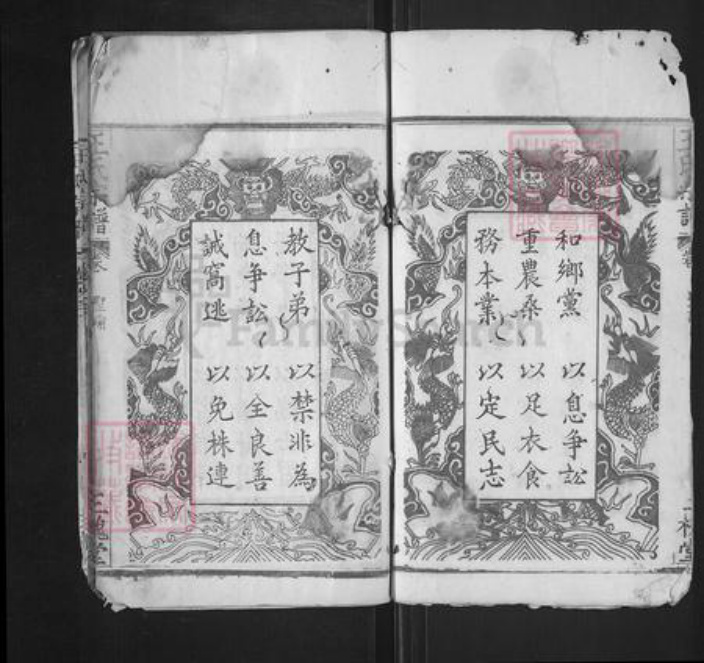 和鄉黨 以息爭訟
重農桑 以足衣食
務本業 以定民志
教子弟 以禁非為
息爭訟 以全良善
誡窩逃 以免株連
三槐堂
FamilySearch